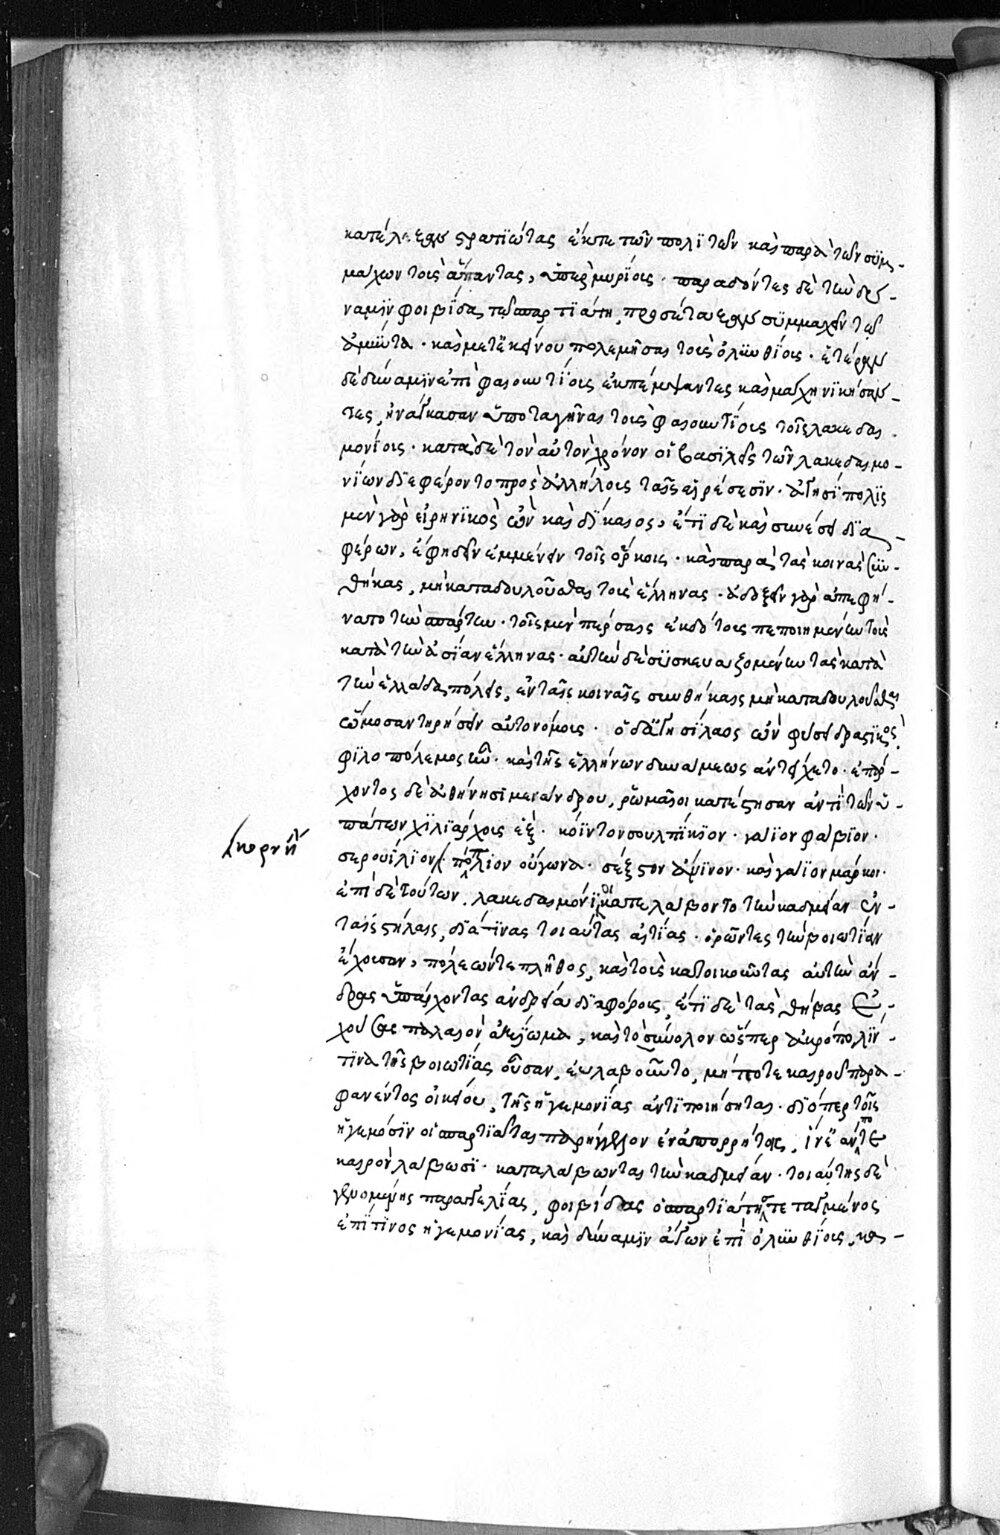 κατέλεξαν στρατιώτας ἔκ τε τῶν πολιτῶν καὶ παρὰ τῶν συμ-
μάχων τοὺς ἅπαντας, ὑπὲρ μυρίους. παραδόντες δὲ τὴν δύ-
ναμιν φοιβίδα τῶ σπαρτιάτη, προσέταξαν συμμαχεῖν τῶ
ἀμύντα. καὶ μετ' ἐκείνου πολεμῆσαι τοῖς ὀλυνθίοις. ἑτέραν
δὲ δύναμιν ἐπὶ φαρουντίους ἐκπέμψαντες καὶ μάχη νικήσαν
τες, ἠνάγκασαν ὑποταγῆναι τοὺς φαρουντίους τοῖς λακεδαι
μονίοις. κατὰ δὲ τὸν αὐτὸν χρόνον οἱ βασιλεῖς τῶν λακεδαιμο-
νίων διεφέροντο πρὸς ἀλλήλους ταῖς αἱρέσεσιν. ἀγησίπολις
μὲν γὰρ εἰρηνικὸς ὢν καὶ δίκαιος, ἔτι δὲ καὶ συνέσει δια
φέρων, ἔφη δεῖν ἐμμένειν τοῖς ὅρκοις. καὶ παρὰ τὰς κοινὰς συν-
θήκας, μὴ καταδουλοῦσθαι τοὺς ἕλληνας. ἀδοξεῖν γὰρ ἀπεφή-
νατο τὴν σπάρτην. τοῖς μὲν πέρσαις ἐκδότους πεποιημένην τοὺς
κατὰ τὴν ἀσίαν ἕλληνας. αὐτὴν δὲ συσκευαζομένην τὰς κατὰ
τὴν ἑλλάδα πόλεις, ἐν ταῖς κοιναῖς συνθήκαις μὴ καταδουλοῦσθαι
ὤμοσαν τηρήσειν αὐτονόμους. ὁ δ' ἀγησίλαος ὢν φύσει δραστικὸς,
φιλοπόλεμος ἦν. καὶ τῆς ἑλλήνων δυναμεως ἀντείχετο. ἐπάρ-
χοντος δὲ ἀθήνησι μενάνδρου, ῥωμαῖοι κατέστησαν ἀντὶ τῶν ὑ-
πάτων χιλιάρχους ἕξ. κόϊντον σουλπίκιον. γάϊον φάβιον.
σερουίλιον πόπλιον οὐγωνα. σέξστον ἀψινον. καὶ γάϊον μάρκου.
ἐπὶ δὲ τούτων, λακεδαιμόνιοι κατελάβοντο τὴν καδμείαν ἐν
ταῖς στήλαις, διά τινας τοιαύτας αἰτίας. ὁρῶντες τὴν βοιωτίαν
ἔχουσαν, πόλεών τε πλῆθος, καὶ τοὺς κατοικοῦντας αὐτὴν ἄν-
δρας ὑπάρχοντας ἀνδρεία διαφόρους, ἔτι δὲ τὰς θήβας
ἐχούσας παλαιὸν ἀξίωμα, καὶ τὸ σύνολον ὥσπερ ἀκρόπολίν
τινα τῆς βοιωτίας οὖσαν, εὐλαβοῦντο, μή ποτε καιροῦ παρα-
φανέντος οἰκείου, τῆς ἡγεμονίας ἀντιποιήσηται. διόπερ τοῖς
ἡγεμόσιν οἱ σπαρτιᾶται παρήγγελλον ἐν ἀπορρήτοις, ἵν' ἐάν ποτε
καιρὸν λάβωσι. καταλάβωνται τὴν καδμείαν. τοιαύτης δὲ
γενομένης παραγγελίας, φοιβίδας ὁ σπαρτιάτης τεταγμένος
ἐπί τινος ἡγεμονίας, καὶ δύναμιν ἄγων ἐπὶ ὀλυνθίους, κα-